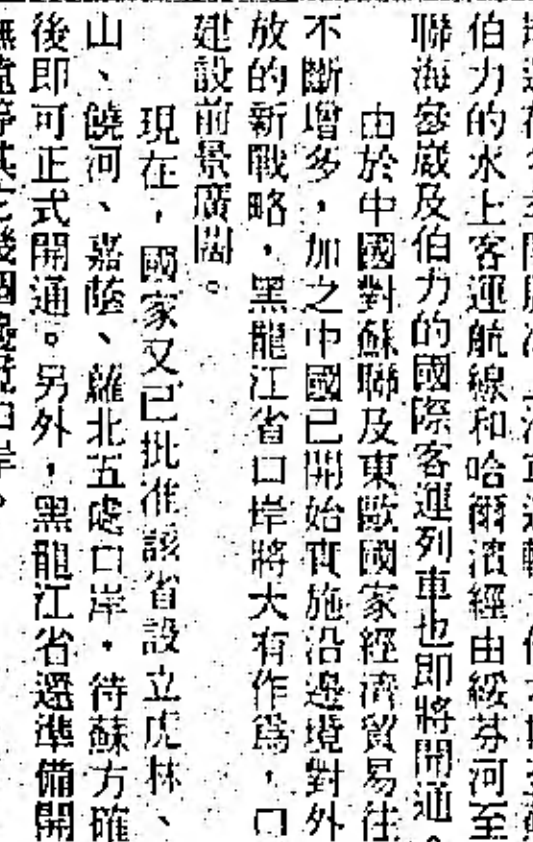 伯力的水上客運航線和哈爾濱經由綏芬河至
聯海參崴及伯力的國際客運列車也即將開通。
由於中國對蘇聯及東歐國家經濟貿易往
不斷增多，加之中國已開始實施沿邊境對外
放的新戰略，黑龍江省口岸將大有作爲，口
建設前景廣闊。
現在，國家又已批准該省設立虎林、
山、饒河、嘉蔭、蘿北五處口岸，待蘇方確
後即可正式開通。另外，黑龍江省還準備開